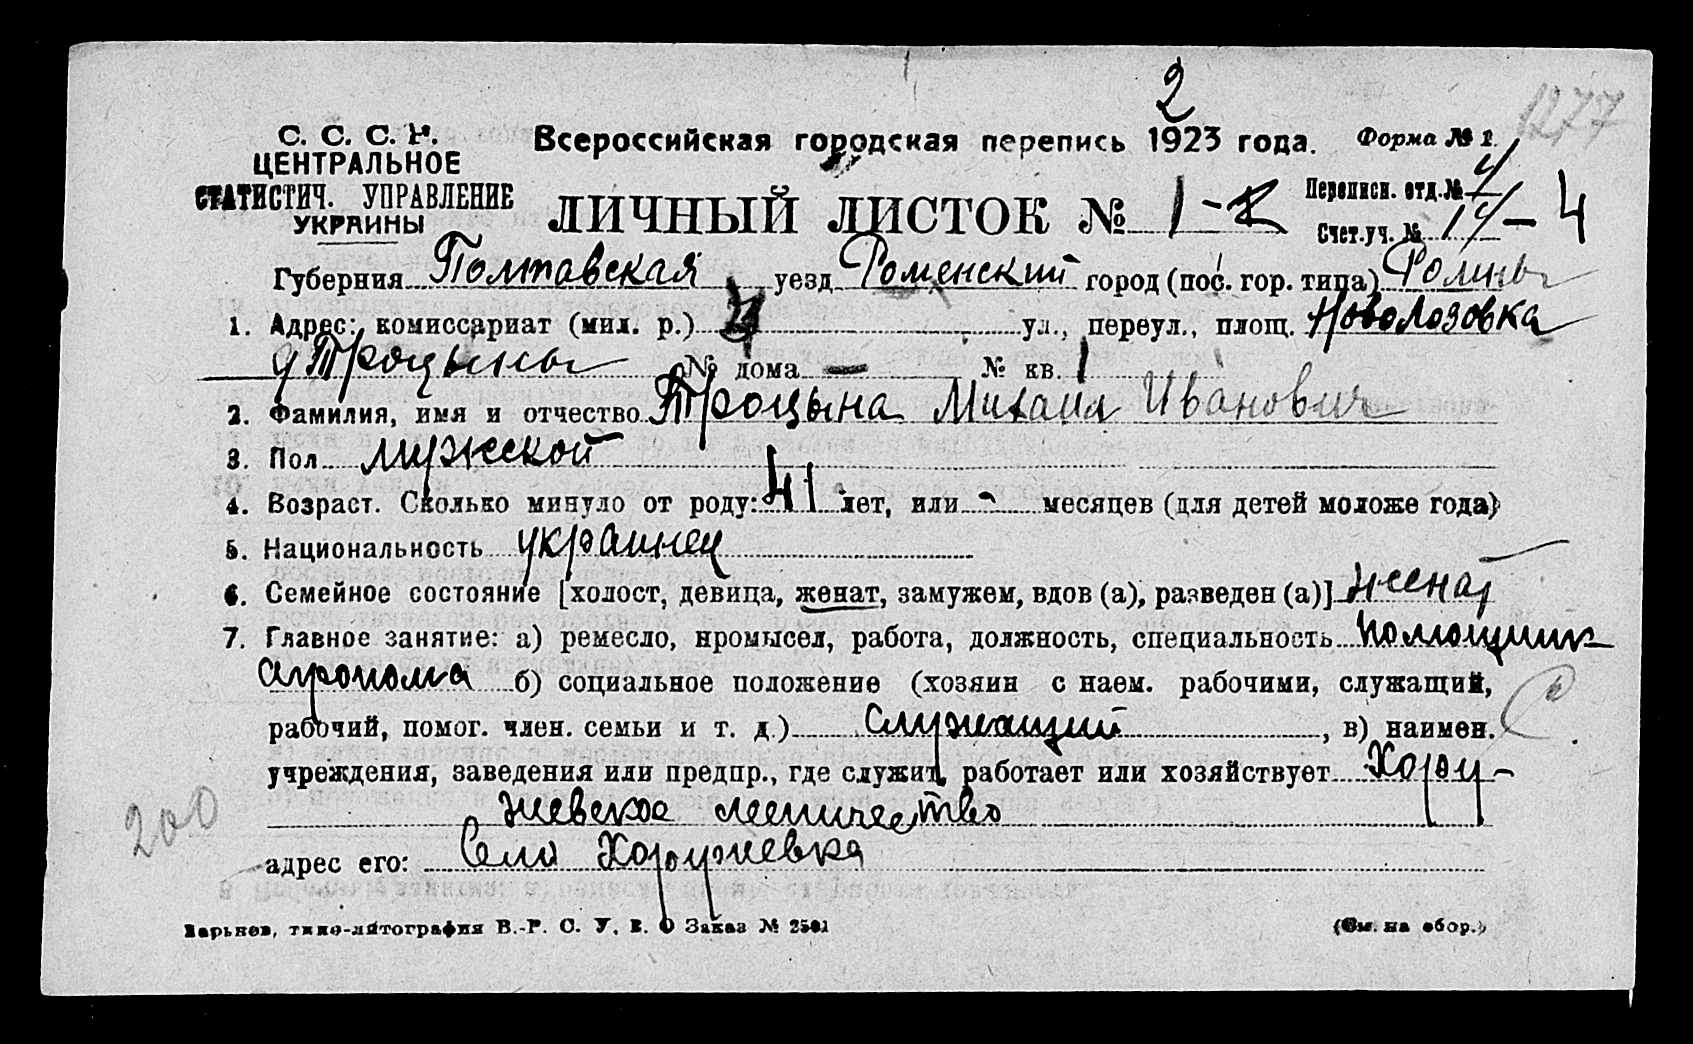 2
1277
С. С. С. Р.
Всероссийская городская перепись 1923 года.
Форма № 1.
ЦЕНТРАЛЬНОЕ
СТАТИСТИЧ. УПРАВЛЕНИЕ
УКРАИНЫ
ЛИЧНЫЙ ЛИСТОК № 1-
Переписн. отд. № 4
Счет.уч. № 14 - 4
Губерния Полтавская уезд Роменский город (пос. гор. типа) Ромны
1. Адрес: комиссариат (мил. р.) 4 ул., переул., площ. Новолозовка
д Троцыны № дома — № кв. 1
2. Фамилия, имя и отчество Троцына Михаил Иванович
3. Пол мужской
4. Возраст. Сколько минуло от роду: 41 лет, или - месяцев (для детей моложе года)
5. Национальность украинец
6. Семейное состояние [холост, девица, женат, замужем, вдов (а), разведен (а)] женат
7. Главное занятие: а) ремесло, промысел, работа, должность, специальность помощник
агронома б) социальное положение (хозяин с наем. рабочими, служащий,
рабочий, помог. член. семьи и т. д.) служащий, в) наимен.
учреждения, заведения или предпр., где служит, работает или хозяйствует Хору-
жевское лесничество
200
адрес его: Село Хоружевка
Харьков, типо-литография В.-Р. С. У. В. О Заказ № 2501
(См. на обор.)